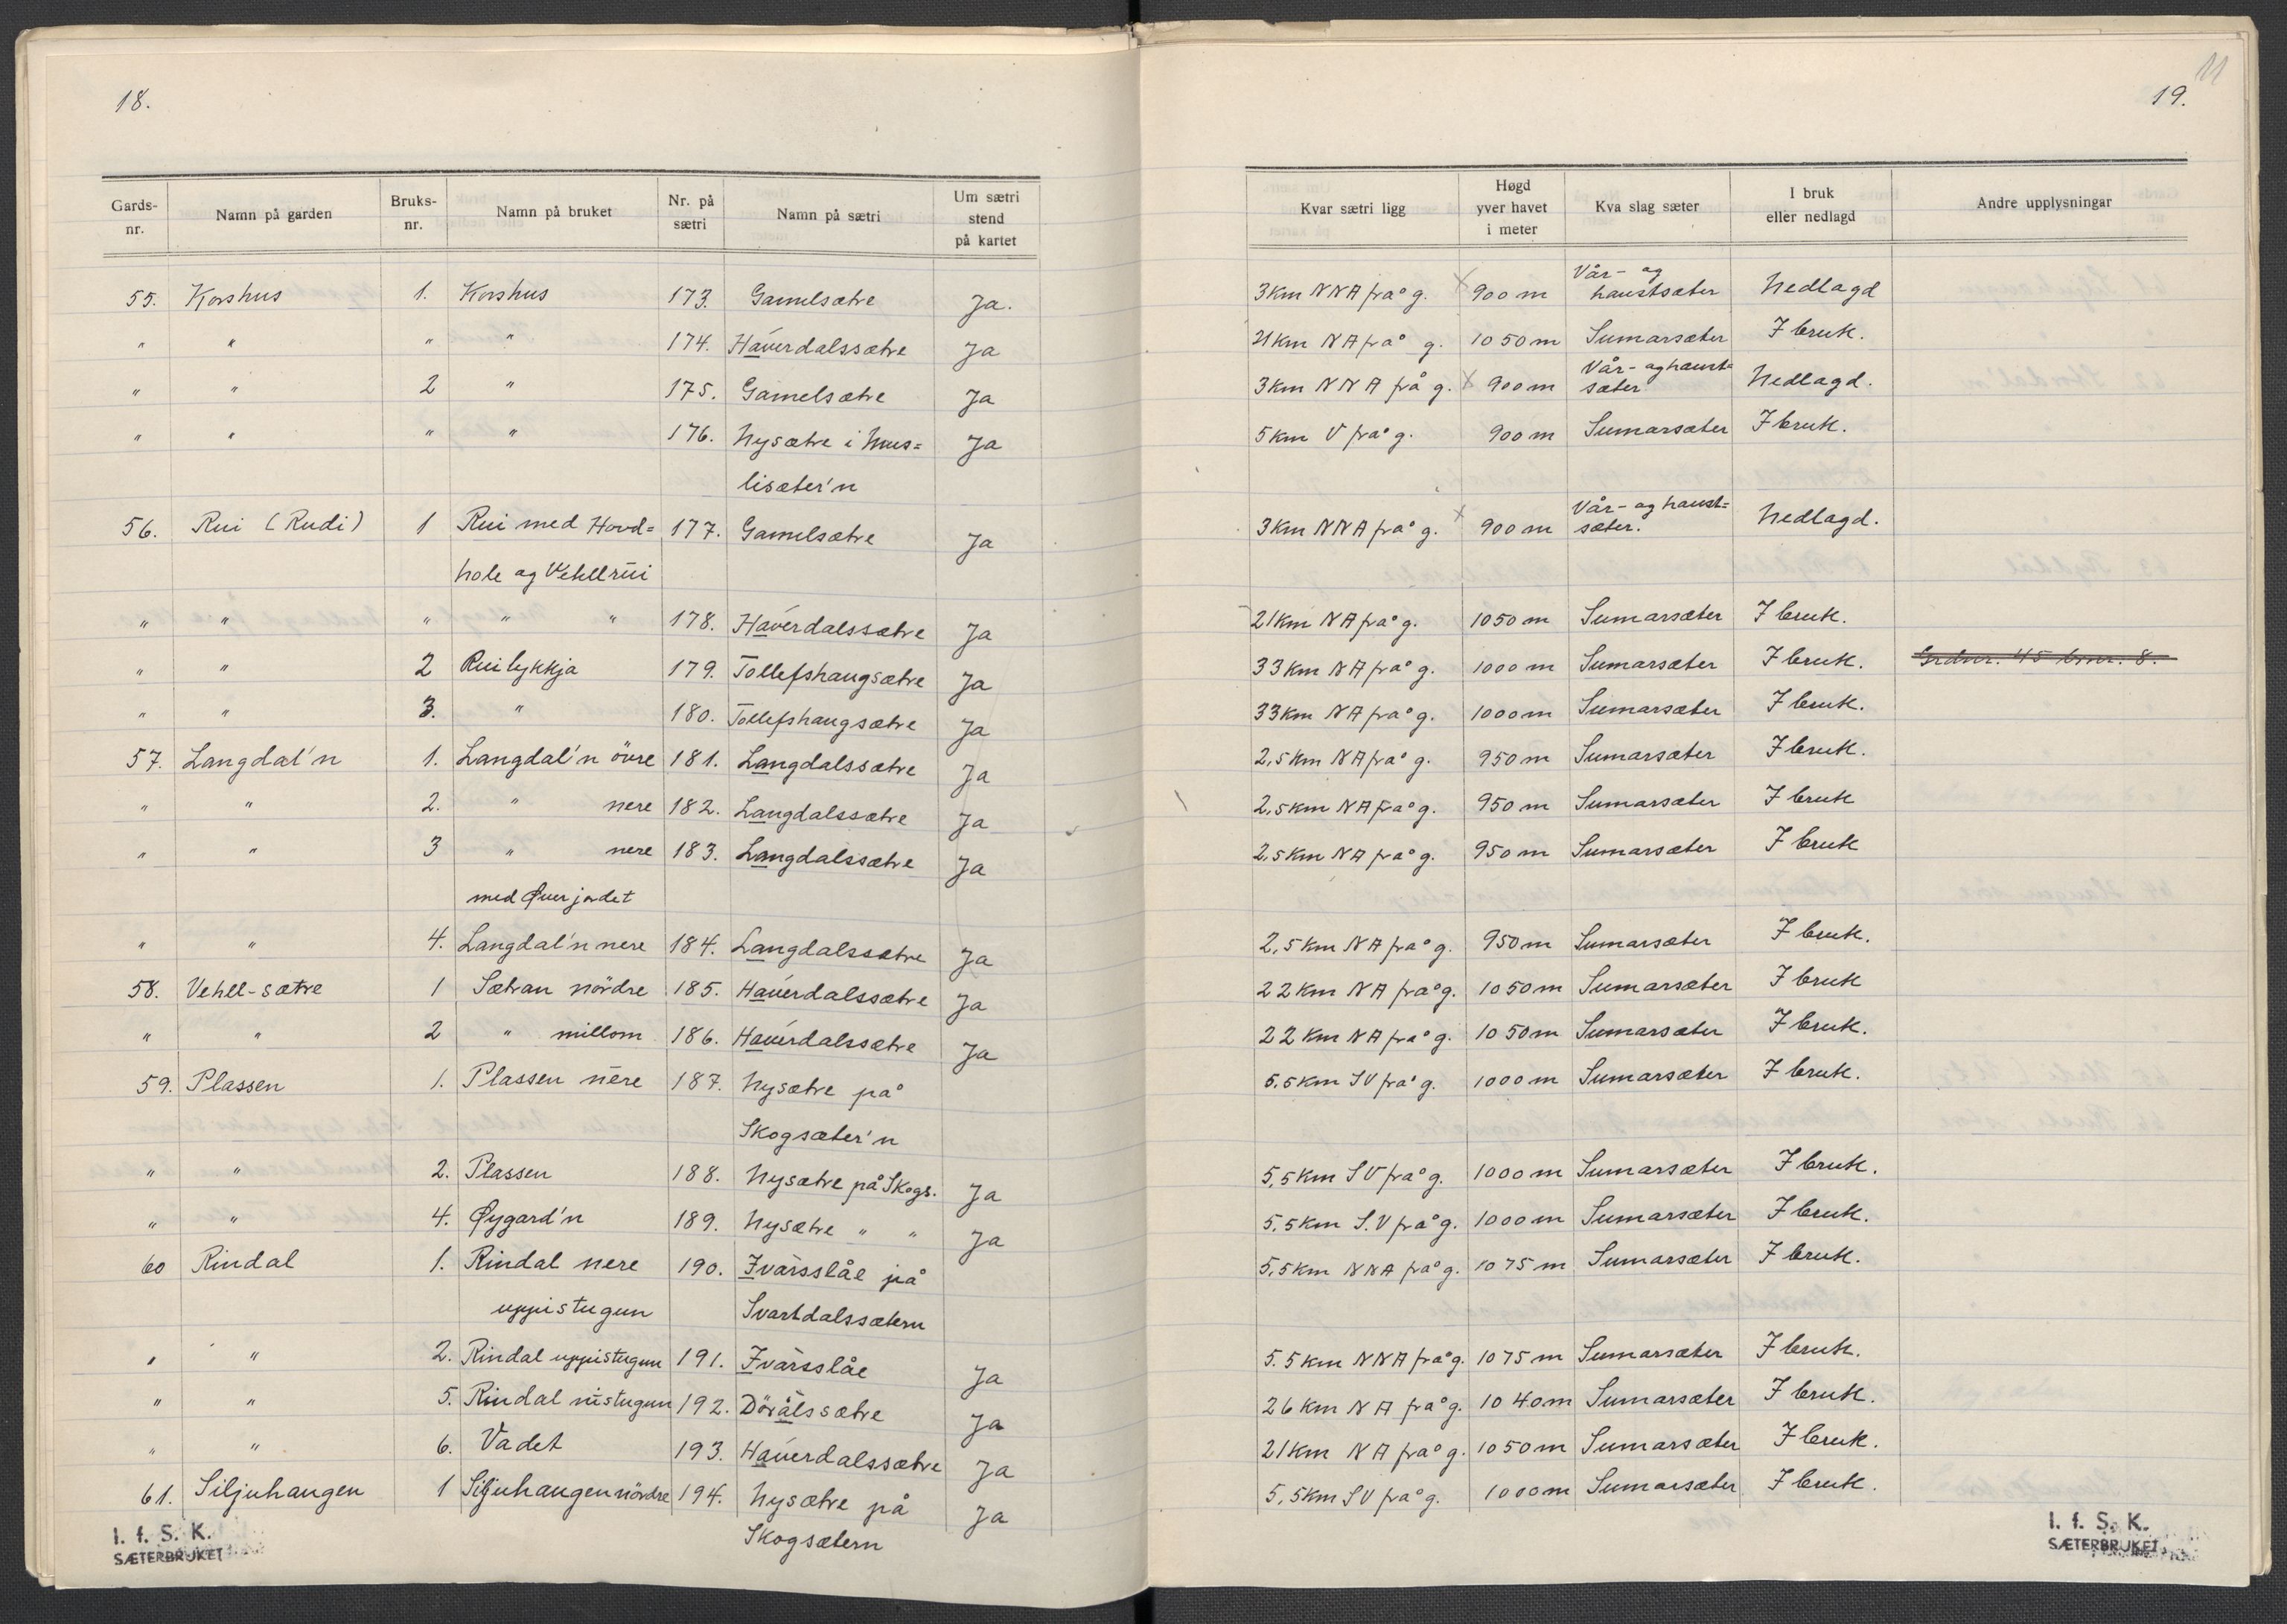 18.
Gards-nr. Namn på garden Bruks-nr. Namn på bruket Nr. på sætri Namn på sætri Um sætri stend på kartet
55. Korshus 1. Korshus 173. Gamelsætre Ja.
" " " " 174. Haverdalssætre Ja
" " 2 " 175. Gamelsætre Ja
" " " " 176. Nysætre i Mus= Ja
lisæter'n
56. Rui (Rudi) 1 Rui med Hovd= 177. Gamelsætre Ja
hole og Vehllrui
" " " " " 178. Haverdalssætre Ja
" " 2 Ruilykkja 179. Tollefshaugsætre Ja
" " 3. " 180. Tollefshaugsætre Ja
57. Langdal'n 1. Langdal'n övre 181. Langdalssætre Ja
" " 2. " nere 182. Langdalssætre Ja
" " 3 " nere 183. Langdalssætre Ja
med Øverjordet
" " 4. Langdal'n nere 184. Langdalssætre Ja
58. Vehll-sætre 1 Sætran nördre 185. Haverdalssætre Ja
" " 2 " millom 186. Haverdalssætre Ja
59. Plassen 1. Plassen nere 187. Nysætre på
Skogsæter'n
" " 2. Plassen 188. Nysætre på Skogs. Ja
" " 4. Øygard'n 189. Nysætre " " Ja
60 Rindal 1. Rindal nere 190. Ivarsslåe på
uppistugun Svartdalssætern
" " 2. Rindal uppistugun 191. Ivarsslåe Ja
" " 5. Rindal nistugun 192. Dörålssætre Ja
" " 6. Vadet 193. Haverdalssætre Ja
61. Siljuhaugen 1 Siljuhaugen nördre 194. Nysætre på Ja
Skogsætern
I. f. S. K.
SÆTERBRUKET
11
19.
Kvar sætri ligg Høgd yver havet i meter Kva slag sæter I bruk eller nedlagd Andre upplysningar
3 km NNA frå g. x 900 m Vår- og haustsæter Nedlagd
21 km NA frå g. 1050 m Sumarsæter I bruk.
3 km NNA frå g. x 900 m Vår- og haust=sæter Nedlagd.
5 km V frå g. 900 m Sumarsæter I bruk.
3 km NNA frå g. x 900 m Vår- og haust=sæter. Nedlagd.
21 km NA frå g. 1050 m Sumarsæter I bruk.
33 km NA frå g. 1000 m Sumarsæter I bruk. Grdnr. 45 brnr. 8.
33 km NA frå g. 1000 m Sumarsæter I bruk.
2,5 km NA frå g. 950 m Sumarsæter I bruk.
2,5 km NA frå g. 950 m Sumarsæter I bruk
2,5 km NA frå g. 950 m Sumarsæter I bruk
2,5 km NA frå g. 950 m Sumarsæter I bruk.
22 km NA frå g. 1050 m Sumarsæter I bruk
22 km NA frå g. 1050 m Sumarsæter I bruk.
5,5 km SV frå g. 1000 m Sumarsæter I bruk.
5,5 km SV frå g. 1000 m Sumarsæter I bruk.
5,5 km S.V frå g. 1000 m Sumarsæter I bruk.
5,5 km NNA frå g. 1075 m Sumarsæter I bruk.
5.5 km NNA frå g. 1075 m Sumarsæter I bruk.
26 km NA frå g. 1040 m Sumarsæter I bruk.
21 km NA frå g. 1050 m Sumarsæter I bruk.
5,5 km SV frå g. 1000 m Sumarsæter I bruk.
I. f. S. K.
SÆTERBRUKET